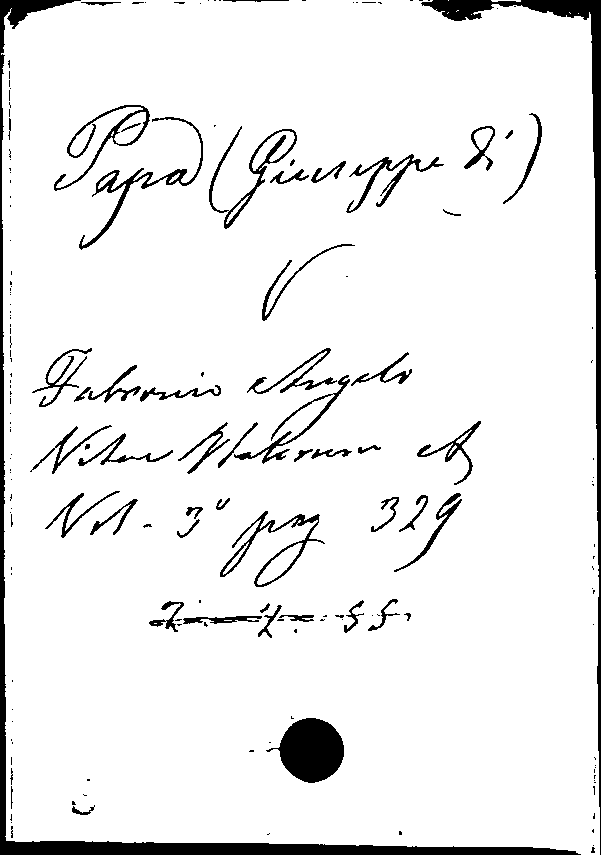 Papa (Giuseppe di)
V
Fabronio Angelo
Vitae Italorum &
Vol. 3º pag 329
7. 7. 55.